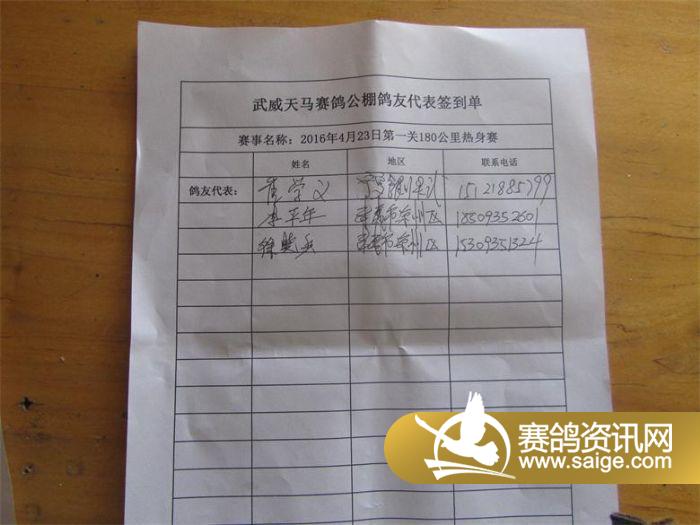 武威天马赛鸽公棚鸽友代表签到单
赛事名称：2016年4月23日第一关180公里热身赛
姓名 地区 联系电话
鸽友代表： 学义 15121885799
李平年 州区 18509352601
徐 兵 州区 15309351324
赛鸽资讯网
www.saige.com